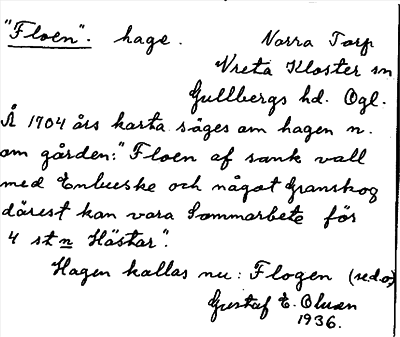 "Floen". hage. Norra Torp
Vreta Kloster sn
Gullbergs hd. Ögl.
Å 1704 års karta säges om hagen n.
om gården: "Floen af sank vall
med Enbuske och något Granskog
därest kan vara Sommarbete för
4 stn Hästar".
Hagen kallas nu: Flogen (se d.o)
Gustaf E. Olsson
1936.